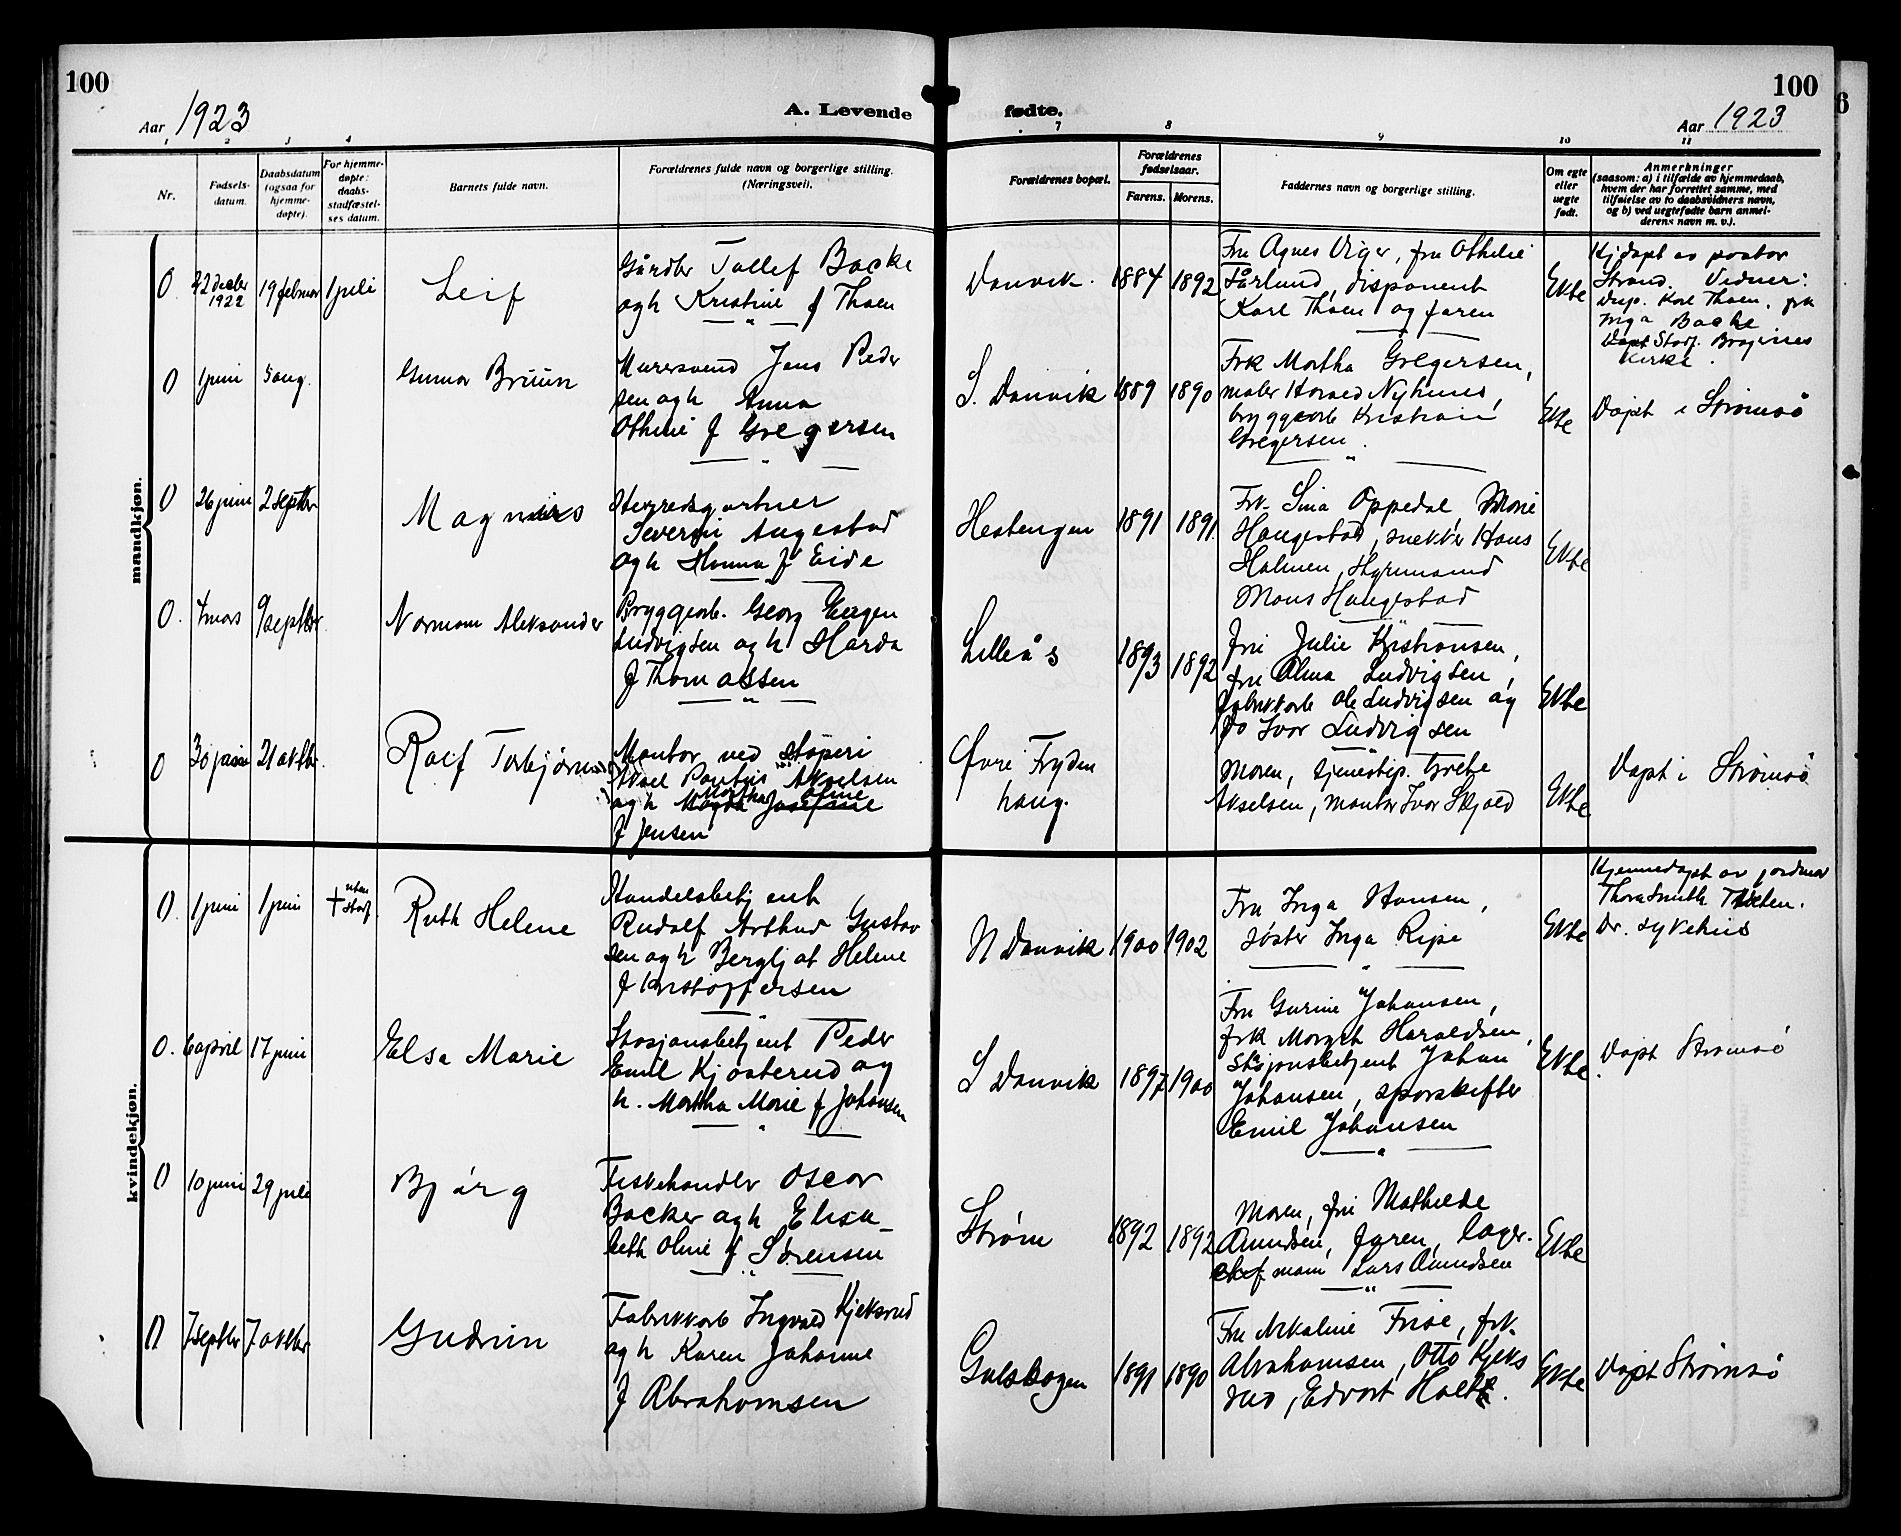 100
100
6
Aar 1923
A. Levende fødte.
Aar 1923
1 2 3 4 7 8 9 10 11
Nr.
Fødsels-
datum.
Daabsdatum
(ogsaa for
hjemme-
døpte).
For hjemme-
døpte:
daabs-
stadfæstel-
ses datum.
Barnets fulde navn.
Forældrenes fulde navn og borgerlige stilling.
(Næringsvei).
Forældrenes bopæl.
Forældrenes
fødselsaar.
Farens. Morens.
Faddernes navn og borgerlige stilling.
Om egte
eller
uegte
født.
Anmerkninger
(saasom: a) i tilfælde av hjemmedaab,
hvem der har forrettet samme, med
tilføielse av to daabsvidners navn,
og b) ved uegtefødte barn anmel-
derens navn m. v.).
mandkjøn.
0. 22 decbr
1922
19 februar
1 juli
Leif
Gårdbr Tollef Backe
og h Kristine f Thoen
Danvik.
1884
1892
Fru Agnes Viger, fru Othelie
Fårlund, disponent
Karl Thoen og faren
Ekte
Hj døpt av pastor
Strand. Vidner:
disp. Karl Thoen, frk
Inga Backe
Døpt Stadf. Bragernes
Kirke.
0
1 juni
5 aug.
Gunnar Bruun
Murersvend Jens Peder
sen og h Anna
Othine f Gregersen
S. Danvik
1889
1890
Frk Martha Gregersen,
maler Harald Nyhuus,
bryggearb Kristian
Gregersen.
Ekte
Døpt i Strømsø
0
26 juni
2 septbr
Magnus
Herredsgartner
Severin Augestad
og h Hanna f Eide
Hestengen
1891
1891.
Frk. Sina Oppedal, Marie
Haugestad, snekker Hans
Halmen, styrmand
Mons Haugestad
Ekte
0.
4 mars
9 septbr
Norman Aleksander
Bryggearb. Georg Eugen
Ludvigsen og h Harda
f Thomassen
Lilleås
1893
1892
Fru Julie Kristiansen,
fru Alma Ludvigsen,
fabrikkarb Ole Ludvigsen og
Do Ivar Ludvigsen
Ekte
0
30 juni
21 oktbr.
Rolf Torbjørn
Montør ved støperi
Aksel Pontus Akselsen
og h Magda Josefine
Martha Oline
f Jensen
Øvre Fryden
haug.
Moren, tjenestep. Grete
Akselsen, montør Ivar Skjold
Ekte
Døpt i Strømsø
kvindekjøn.
0.
1 juni
1 juni
+ uten
stadf.
Ruth Helene
Handelsbetjent
Rudolf Arthur Gustav
sen og h Bergljot Helene
f Kristoffersen
N Danvik
1900
1902
Fru Inga Hansen,
søster Inga Ripe
Ekte
Hjemmedøpt av jordmor
Thora Smith Tveten.
Dr. sykehus
0.
6 april
17 juni
Elsa Marie
Stasjonsbetjent Peder
Emil Kjosterud og
h. Martha Marie f Johansen
S Danvik
1897
1900
Fru Gurine Johansen,
frk Margit Haraldsen,
stasjonsbetjent Johan
Johansen, sporskifter
Emil Johansen
Ekte
Døpt Strømsø
0
10 juni
29 juli
Bjørg
Fiskehandler Oscar
Backer og h Elisa-
beth Oline f Sørensen
Strøm
1892
1892
Moren, fru Mathilde
Amundsen, faren, lager-
chef mann Lars Amundsen
Ekte
0
7 septbr
7 oktbr
Gudrun
Fabrikkarb Ingvald Kjeksrud
og h Karen Johanne
f Abrahamsen
Gulskogen
1891
1890
Fru Nikoline Frise, frk.
Abrahamsen, Otto Kjeks
rud, Edvart Holt.
Ekte
Døpt Strømsø